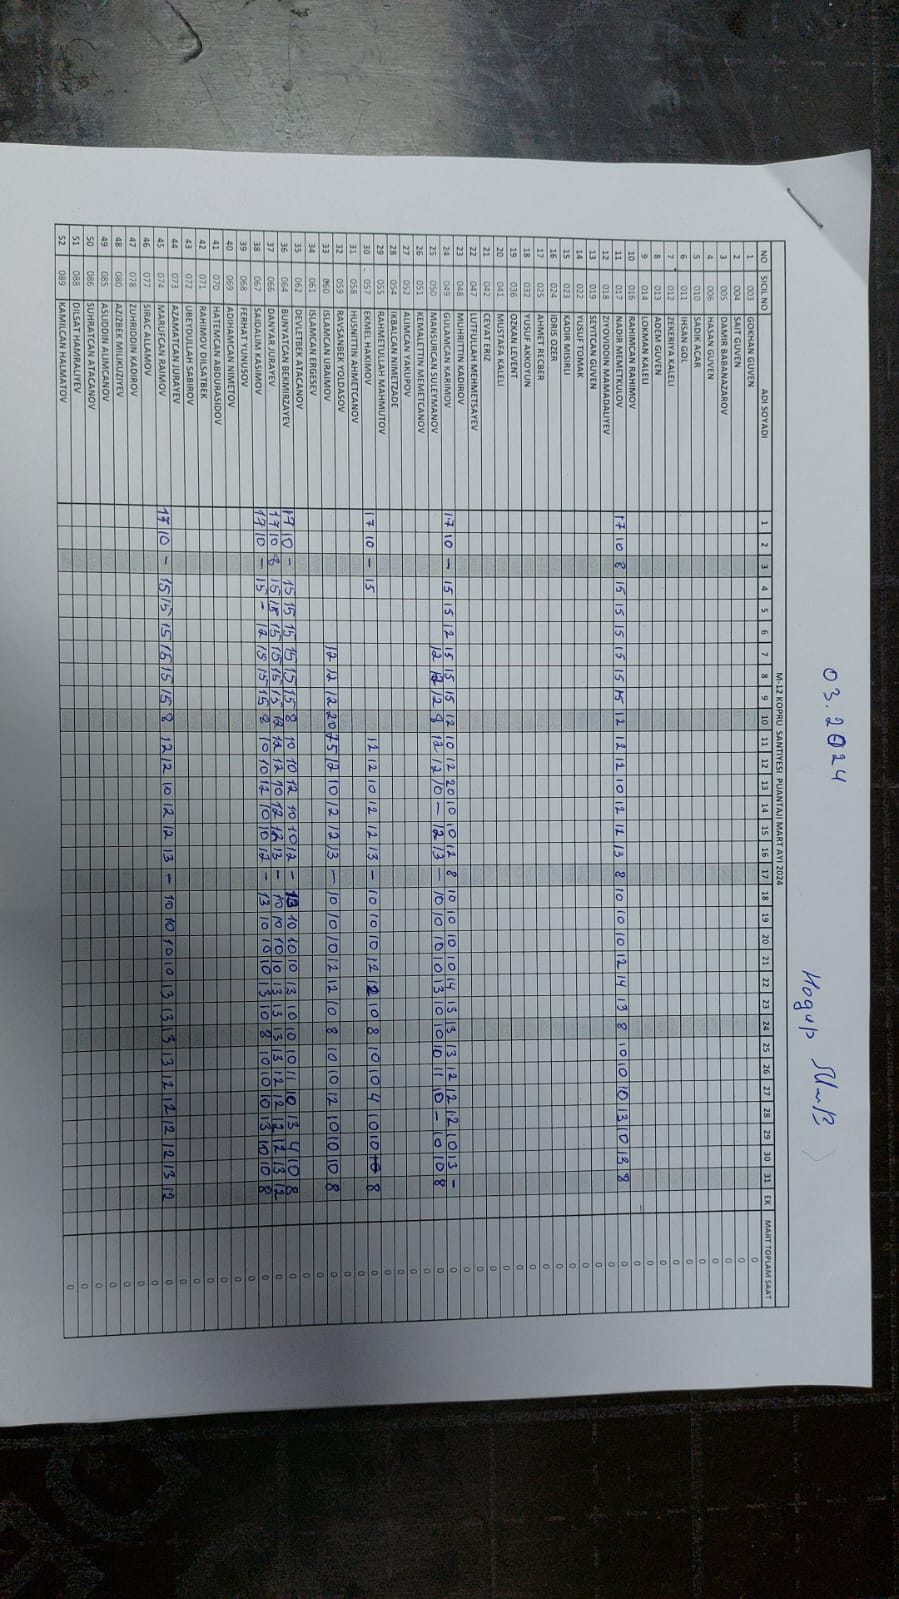 03.2024
Нодир
M-12 KOPRU SANTIYESI PUANTAJI MART AYI 2024
NO SICIL NO ADI SOYADI 1 2 3 4 5 6 7 8 9 10 11 12 13 14 15 16 17 18 19 20 21 22 23 24 25 26 27 28 29 30 31 EK MART TOPLAM SAAT
1 003 GOKHAN GUVEN 0
2 004 SAIT GUVEN 0
3 005 DAMIR BABANAZAROV 0
4 006 HASAN GUVEN 0
5 010 SADIK ACAR 0
6 011 IHSAN GOL 0
7 012 ZEKERIYA KALELI 0
8 013 ADEM GUVEN 0
9 014 LOKMAN KALELI 0
10 016 RAHIMCAN RAHIMOV 0
11 017 NADIR MEMETKULOV 17 10 8 15 15 15 15 15 15 12 12 12 10 12 12 13 8 10 10 10 12 14 13 8 10 10 10 13 10 13 8 0
12 018 ZIYOVIDDIN MAMADALIYEV 0
13 019 SEYITCAN GUVEN 0
14 022 YUSUF TOMAK 0
15 023 KADIR MISIRLI 0
16 024 IDRIS OZER 0
17 025 AHMET RECBER 0
18 032 YUSUF AKKOYUN 0
19 036 OZKAN LEVENT 0
20 041 MUSTAFA KALELI 0
21 042 CEVAT ERIZ 0
22 047 LUTFULLAH MEHMETSAYEV 0
23 048 MUHRITTIN KADIROV 0
24 049 GULAMCAN KARIMOV 17 10 – 15 15 12 15 15 15 12 10 12 20 10 10 12 8 10 10 10 10 14 13 13 13 12 12 12 10 13 – 0
25 050 MANSURCAN SULEYMANOV 12 12 12 8 12 12 10 – 12 13 – 10 10 10 10 13 10 10 10 11 10 – 10 10 8 0
26 051 KEMALETTIN MEMETCANOV 0
27 052 ALIMCAN YAKUPOV 0
28 054 IKBALCAN NIMETZADE 0
29 055 RAHMETULLAH MAHMUTOV 0
30 057 EKMEL HAKIMOV 17 10 – 15 12 12 10 12 12 13 – 10 10 10 12 12 10 8 10 10 4 10 10 10 8 0
31 058 HUSNITTIN AHMETCANOV 0
32 059 RAVSANBEK YOLDASOV 0
33 060 ISLAMCAN URAIMOV 12 12 12 20 25 12 10 12 12 13 – 10 10 10 12 12 10 8 10 10 12 10 10 10 8 0
34 061 ISLAMCAN ERGESEV 0
35 062 DEVLETBEK ATACANOV 0
36 064 BUNYATCAN BEKMIRZAYEV 17 10 – 15 15 15 15 15 15 8 10 10 12 10 10 12 – 13 10 10 10 13 10 10 10 11 10 13 4 10 8 0
37 066 DANYAR JURAYEV 17 10 8 15 15 15 15 15 15 12 12 12 10 12 12 13 – 10 10 10 10 13 13 13 13 12 12 12 12 13 12 0
38 067 SAIDALIM KASIMOV 17 10 – 15 – 12 15 15 15 8 10 10 12 10 10 12 – 13 10 10 10 13 10 8 10 10 10 13 10 10 8 0
39 068 FERHAT YUNUSOV 0
40 069 ADIHAMCAN NIMETOV 0
41 070 HATEMCAN ABDURASIDOV 0
42 071 RAHIMOV DILSATBEK 0
43 072 UBEYDULLAH SABIROV 0
44 073 AZAMATCAN JURAYEV 0
45 074 MARUFCAN RAIMOV 17 10 – 15 15 15 15 15 15 8 12 12 10 12 12 13 – 10 10 10 10 13 13 13 13 12 12 12 12 13 12 0
46 077 SIRAC ALLAMOV 0
47 078 ZUHRIDDIN KADIROV 0
48 080 AZIZBEK MILIKUZIYEV 0
49 085 ASLIDDIN ALIMCANOV 0
50 086 SUHRATCAN ATACANOV 0
51 088 DILSAT HAMRALIYEV 0
52 089 KAMILCAN HALMATOV 0